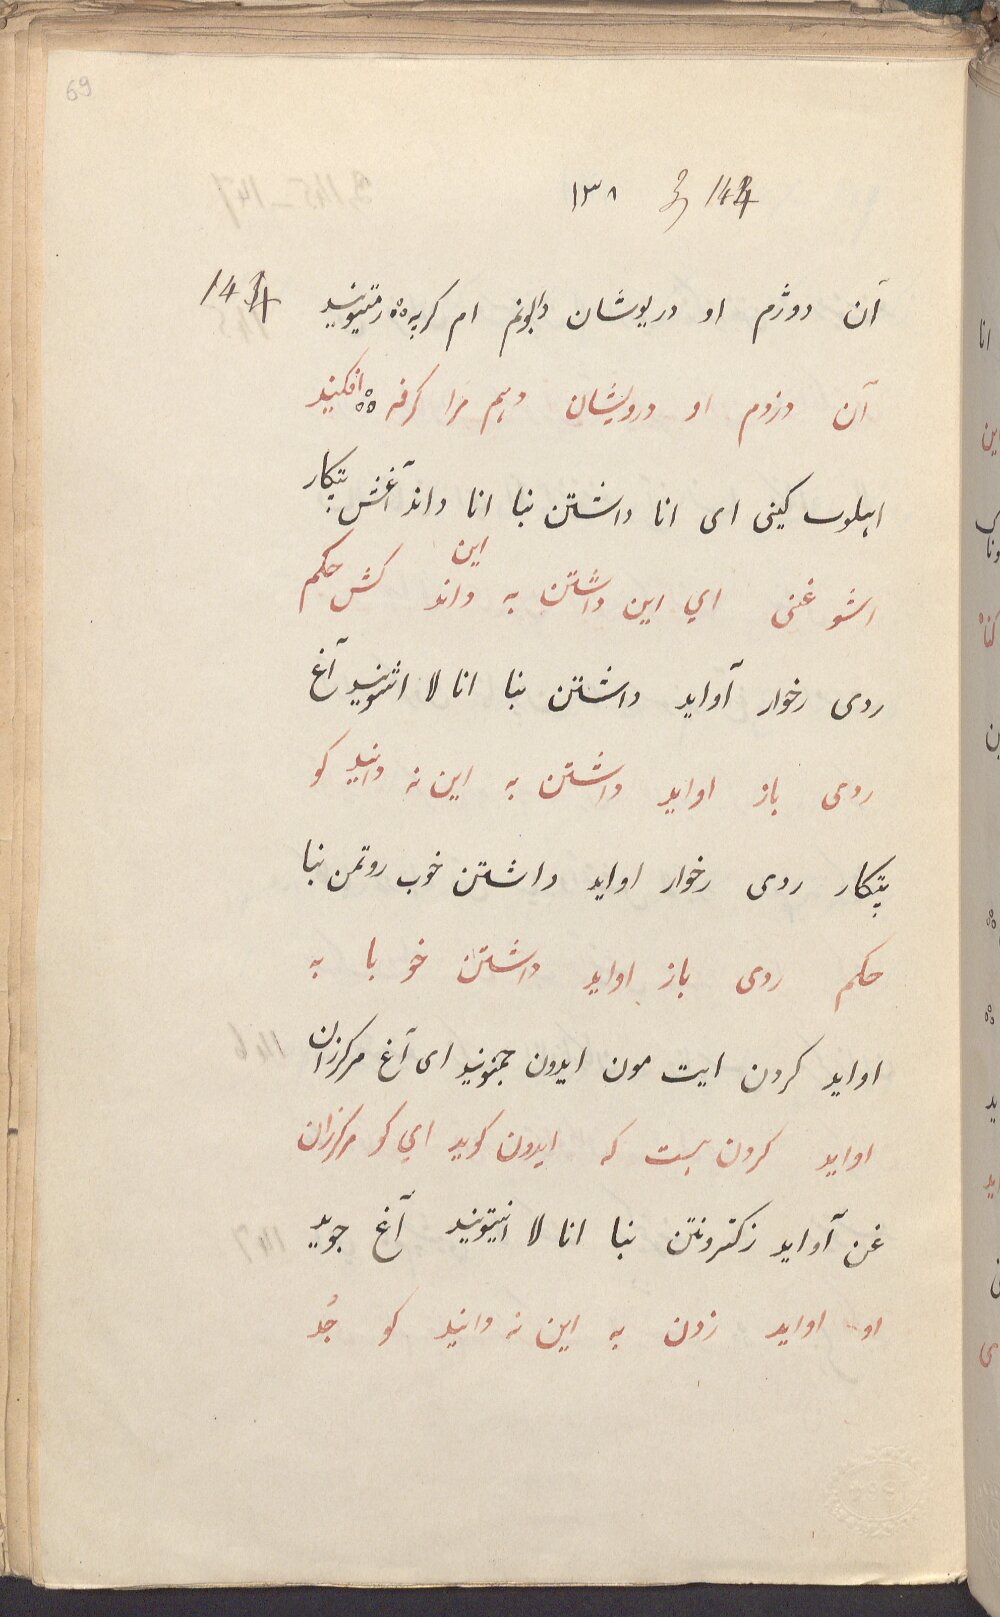 69
١٣٨ 3, 144
آن دوژم او دریوشان دابونم ام کرپه ؞ رمتیونید 144
آن دزدم او درویشان دهم مرا کرفه ؞ افکنید
اهلوب کینی ای انا داشتن بنا انا داند آغش پتکار
اشو غنی اي این داشتن به این داند کش حکم
ردی رخوار آواید داشتن بنا انا لا اشتونید آغ
ردی باز اواید داشتن به این نه دانید کو
پتکار ردی رخوار اواید داشتن خوب روتمن بنا
حکم ردی باز اواید داشتن خو با به
اواید کردن ایت مون ایدون جمنونید ای آغ مرکرزان
اواید کردن هست که ایدون کوید اي کو مرکرزان
غن آواید زکترونتن بنا انا لا انیتونید آغ جوید
او اواید زدن به این نه دانید کو جُد